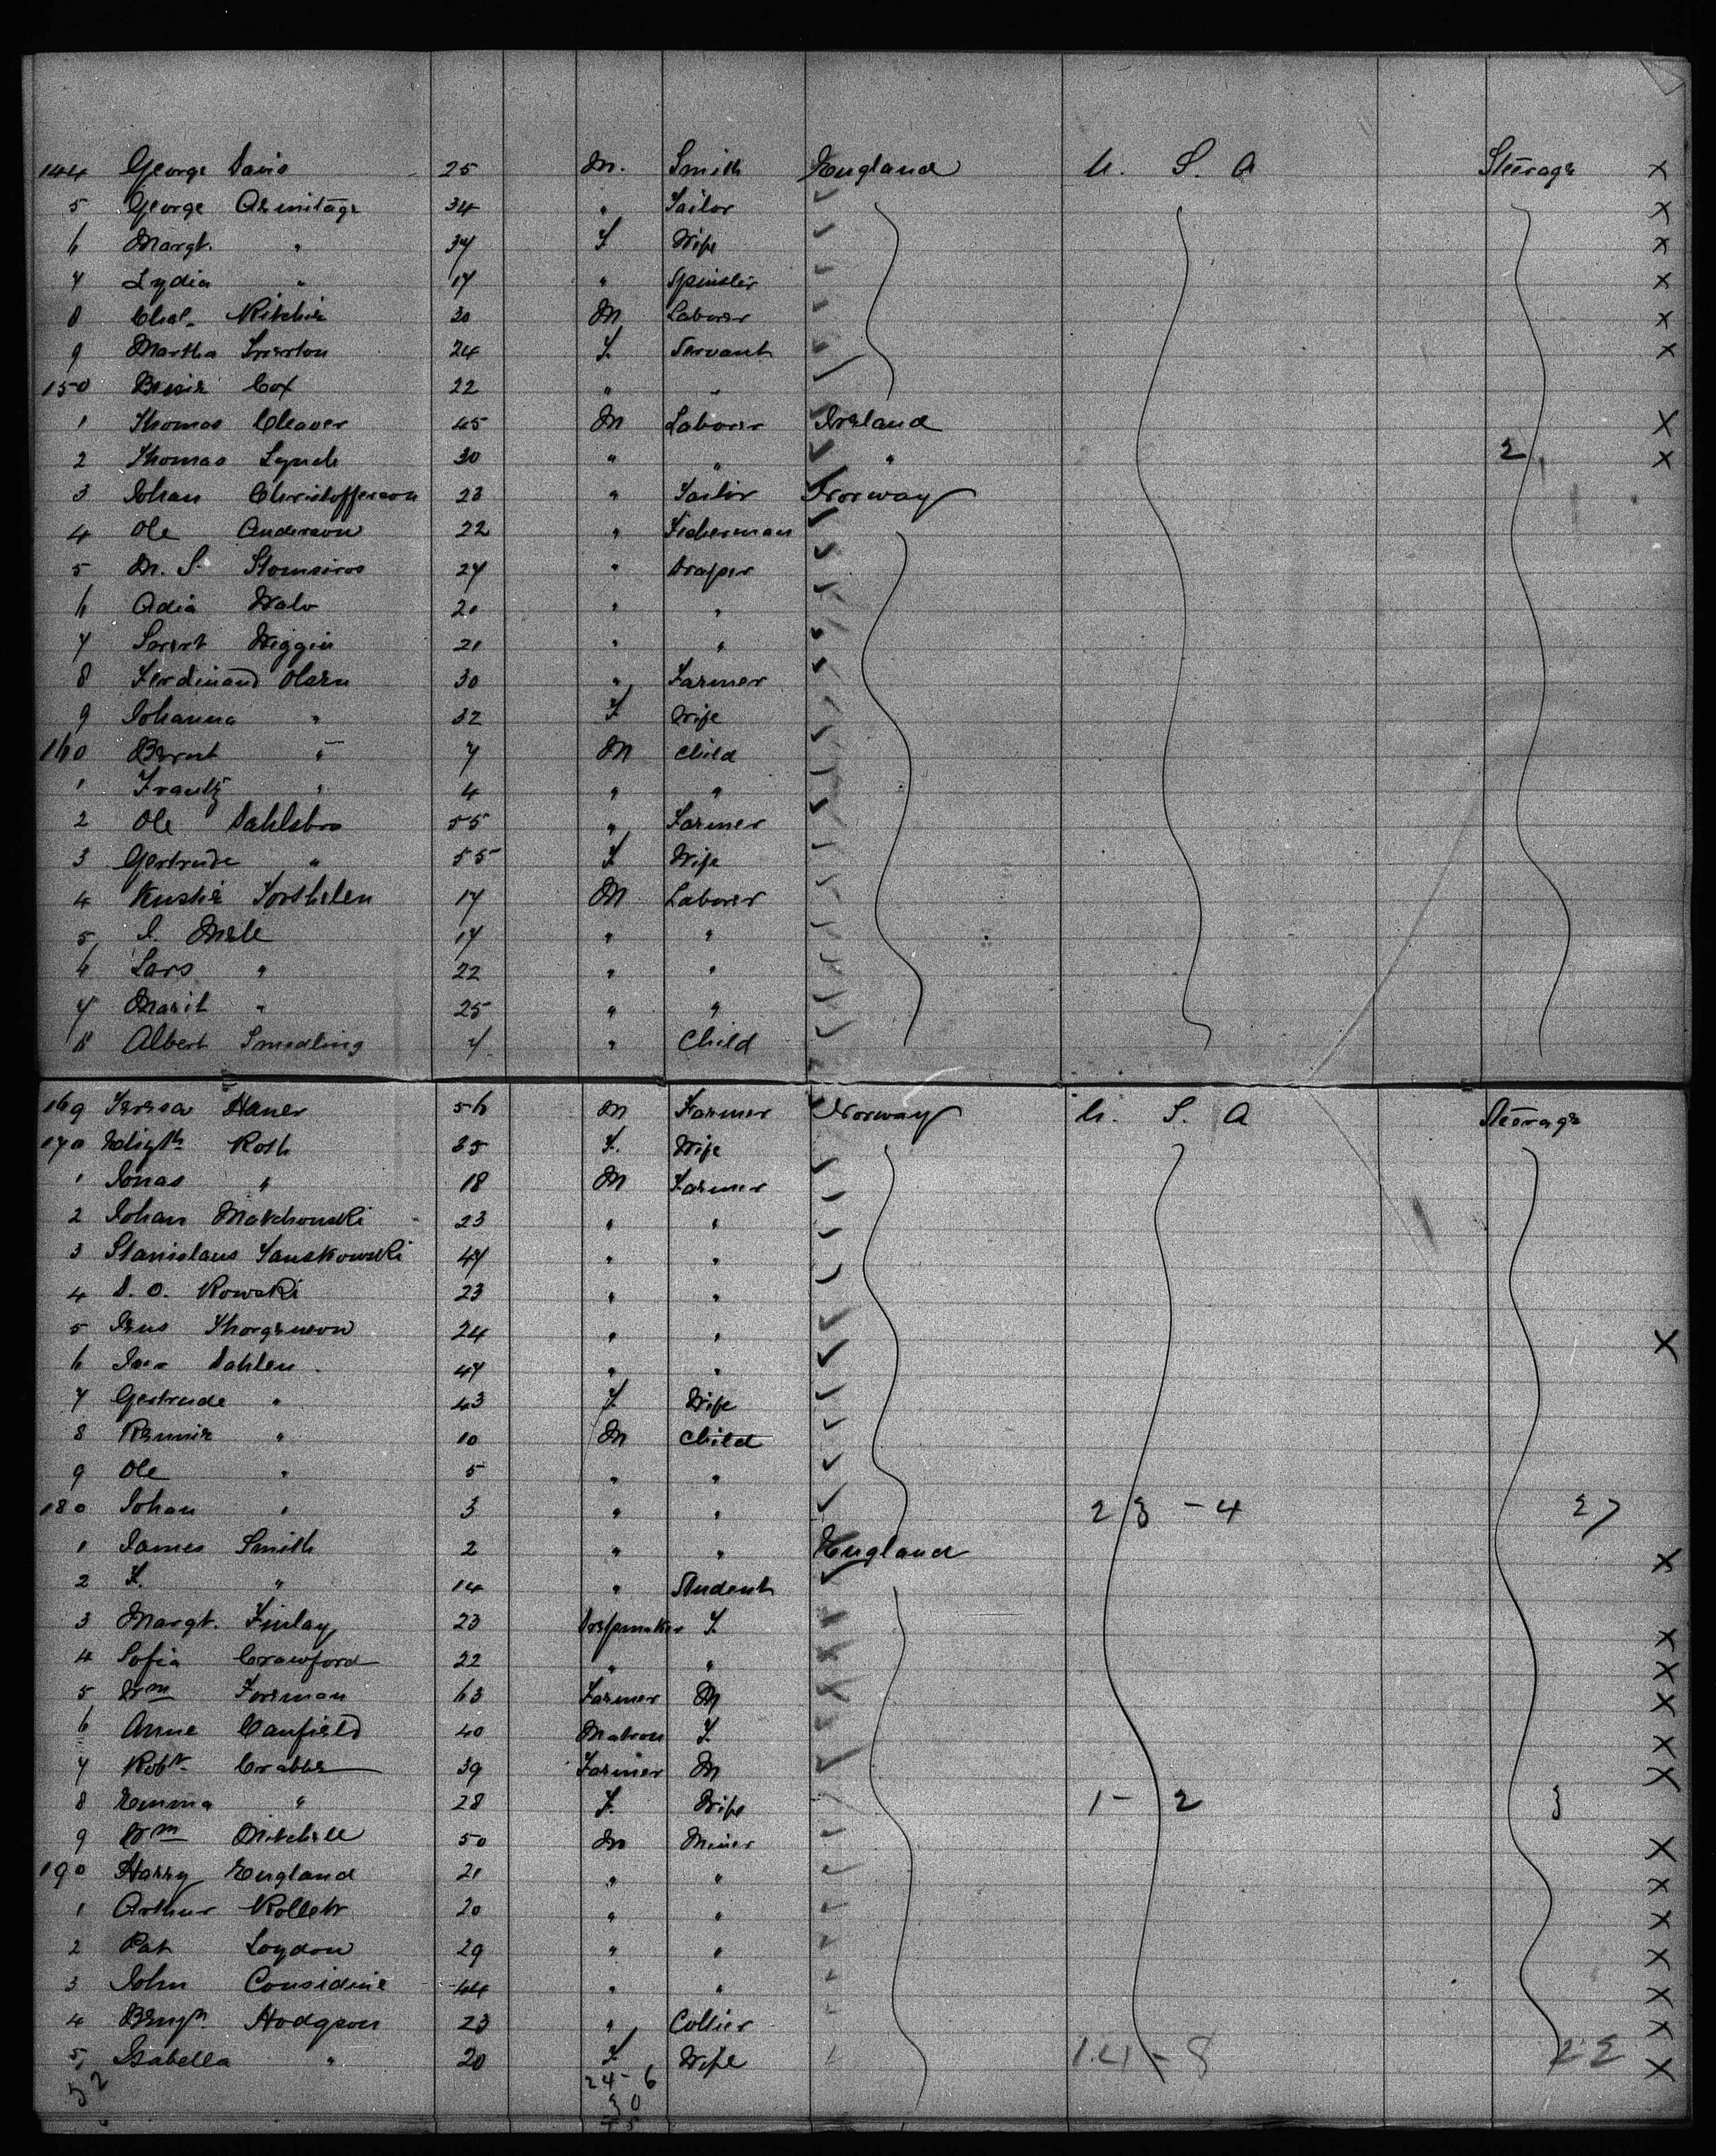 144 George Davis 25 M. Smith England U. S. A Steerage X
5 George Armitage 34 " Tailor X
6 Margt. " 37 F Wife X
7 Lydia " 17 " Spinster X
8 Chas. Ritchie 30 M Laborer X
9 Martha 24 F. Servant X
150 Bessie Cox 22 " "
1 Thomas Cleaver 45 M Laborer Ireland X
2 Thomas Lynch 30 " " " 2 X
3 Johan Christofferson 23 " Tailor Norway
4 Ole Anderson 22 " Fisherman
5 M. S. 27 " Draper
6 Adia 21 " "
7 Wiggin 21 " "
8 Ferdinand Olsen 30 " Farmer
9 Johanna " 32 F Wife
160 Bernt " 7 M Child
1 Frantz " 4 " "
2 Ole Dahlsbro 55 " Farmer
3 Gertrude " 55 F Wife
4 17 M Laborer
5 17 " "
6 Lars " 22 " "
7 Marit " 25 " "
8 Albert Smedling 7 " Child
169 Hauer 56 M Farmer Norway U. S. A Steerage
170 Roth 35 F. Wife
1 Jonas " 18 M Farmer
2 Johan Matchowski 23 " "
3 Stanislaus Janskowski 47 " "
4 Kowski 23 " "
5 Jens Thorgenson 24 " " X
6 Dahlen 47 " "
7 Gertrude " 43 F Wife
8 Rennie " 10 M Child
9 Ole " 5 " "
180 Johan " 3 " " 23 - 4 27
1 James Smith 2 " " England X
2 F. " 14 " Student
3 Margt. Finlay 23 Dressmaker F X
4 Sofia Crawford 22 " " X
5 Wm Foreman 63 Farmer M X
6 Anne Canfield 40 Matron F. X
7 Robt. Crabbe 39 Farmer M X
8 Emma " 28 F. Wife 1 - 2 3
9 Wm Mitchell 50 M Miner X
190 Harry England 21 " " X
1 Arthur Rollett 20 " " X
2 Pat Loydon 29 " " X
3 John Considine 44 " " X
4 Benjn. Hodgson 23 " Collier X
5 Isabella " 20 F Wife 14 - 8 22 X
52 24 - 6
30